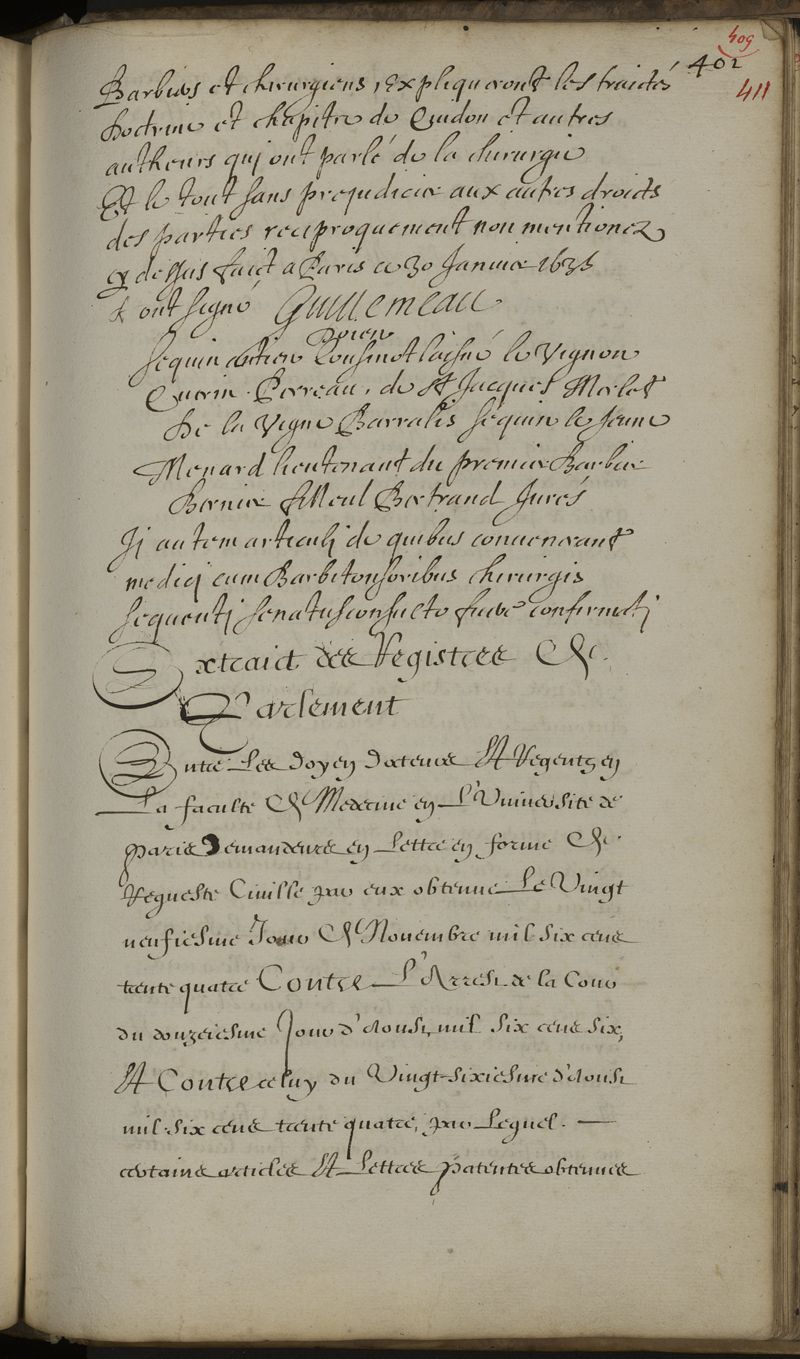 409
402
411
Barbiers et chirurgiens, expliqueront les traictés
doctrine et chapitre de Guidon et autres
autheurs qui ont parlé de la chirurgie
Et le tout sans prejudicier aux autres droicts
des parties reciproquement non mentionez
cy dessus faict a Paris ce 30 Janvier 1635
& ont signé Guillemeau
Doien
Seguin antien Cousinot laisné le Vignon
Guerin Perreau, de St Jacques Merlet
De la Vigne Barralis Seguin le Jeune
Menard lieutenant du premier Barbier
Bernier filleul Bertrand Jurés
Ii autem articuli de quibus convenerant
medici cum Barbitonsoribus chirurgis
sequenti senatusconsulto fuere confirmati
Extraict des Registres de
Parlement
Entre Les doyen docteurs Et Regentz en
La faculte de Medecine en L'Université de
paris Demandeurs en Lettre en forme de
Requeste Civille par eux obtenue Le Vingt
neufiesme Jour de Novembre mil six cens
trente quatre Contre L'Arrest de la Cour
du douzeiesme Jour d'Aoust mil six cens six,
Et Contre celuy du Vingt-sixiesme d'Aoust
mil six cens trente quatre, par Lequel. —
certains articles Et Lettres patentes obtenues